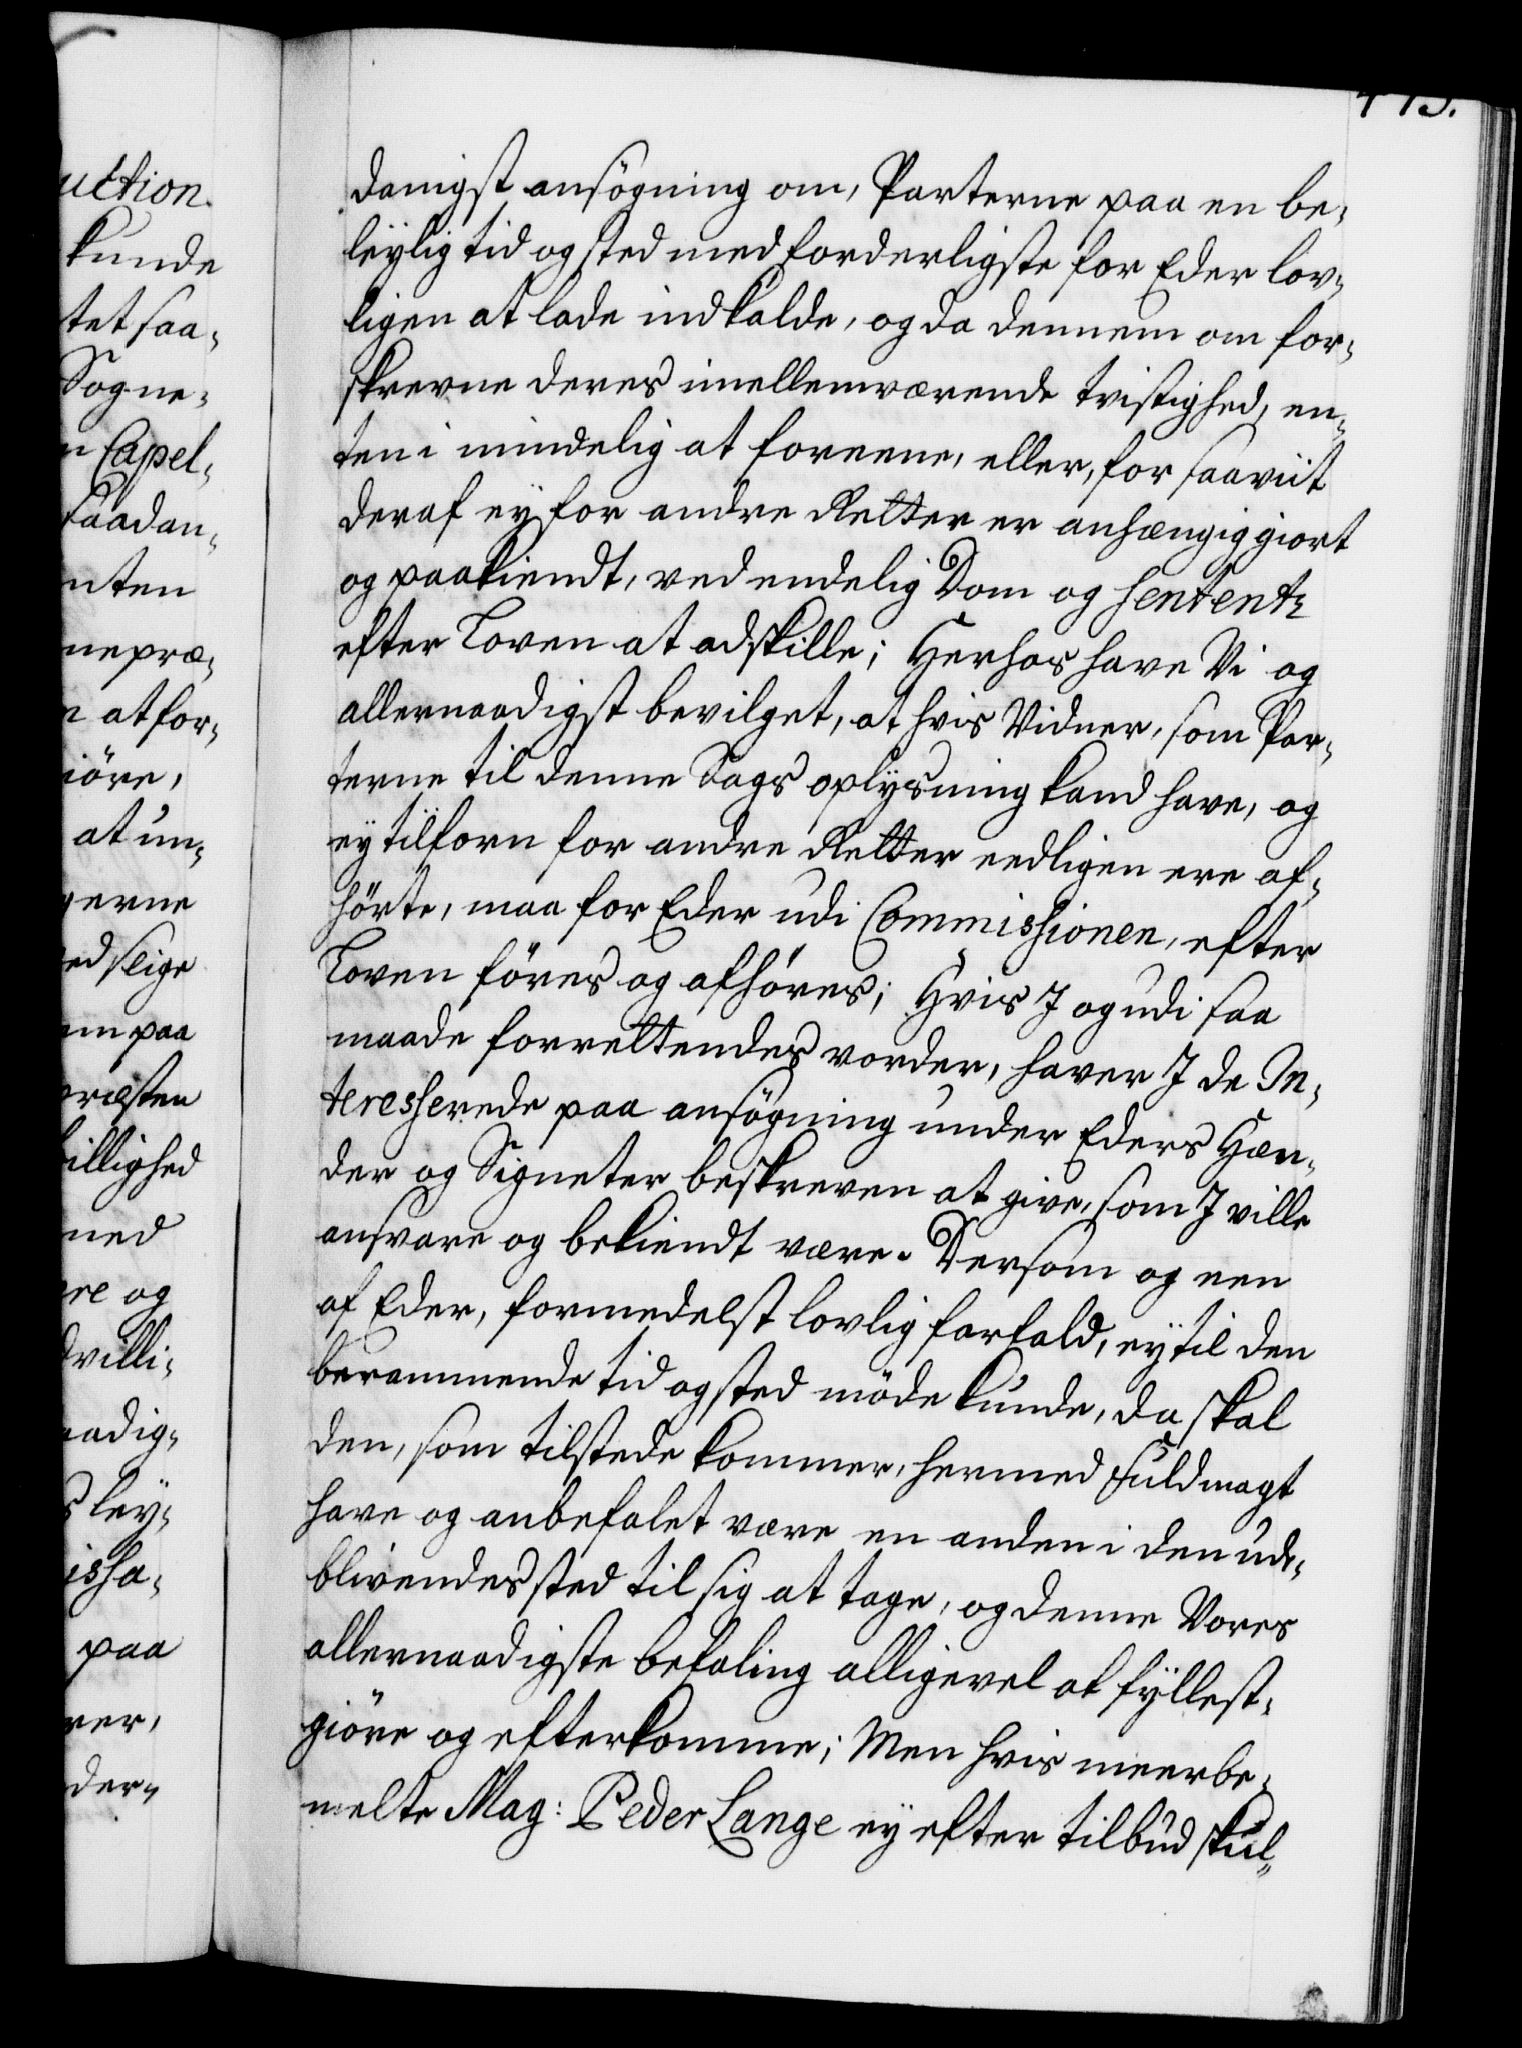 uction.
kunde
tet saa-
Sogne-
n Capel-
saadan-
nten
nepræ-
n at for-
iöre,
at un-
gerne
ed slige
am paa
præsten
billighed
med
ere og
dvilli-
aadig-
s ley-
issa-
paa
ver,
der-
danigst ansögning om, Parterne paa en be-
leylig tid og sted med forderligste for Eder lov-
ligen at lade indkalde, og da dennem om for-
skrevne deres imellemværende tvistighed, en-
ten i mindelig at foreene, eller, for saaviit
deraf ey for andre Retter er anhængig giort
og paakiendt, ved endelig Dom og Sentents
efter Loven at adskille; Herhos have Vi og
allernaadigst bevilget, at hvis Vidner, som Par-
terne til denne Sags oplysning kand have, og
ey tilforn for andre Retter eedligen ere af-
hörte, maa for Eder udi Commissionen, efter
Loven föres og afhöres; Hvis J og udi saa
maade forrettendes vorder, haver J de In-
teresserede paa ansögning under Eders Hæn-
der og Signeter beskreven at give, som J ville
ansvare og bekiendt være. Dersom og een
af Eder, formedelst lovlig forfald, ey til den
berammende tid og sted möde kunde, da skal
den, som tilstede kommer, hermed fuldmagt
have og anbefalet være en anden i den ude-
blivendes sted til sig at tage, og denne Vores
allernaadigste befaling alligevel at fyllest-
giöre og efterkomme; Men hvis meerbe-
melte Mag: Peder Lange ey efter tilbud skul-